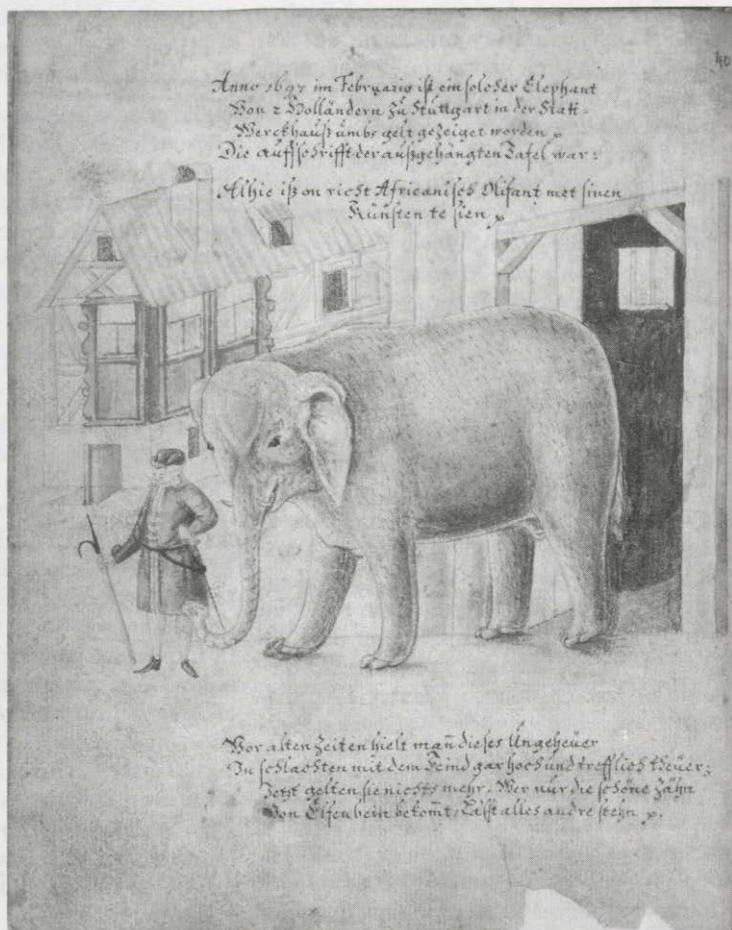 40
Anno 1697 im Februario ist ein solcher Elephant
Von 2 Holländern zu Stuttgart in der Statt-
Werckhauß umbs gelt gezeiget worden
Die auffschrifft der außgehängten Tafel war:
Alhie iß on richt Africanisch Olifant met sinen
Künsten te sien
Vor alten Zeiten hielt mañ dieses Ungeheüer
In schlachten mit dem Feind gar hoch und trefflich theüer;
Jetzt gelten sie nichts mehr. Wer nur die schöne Zähn
Von Elfenbein bekom̃t, Läßt alles andre stehn